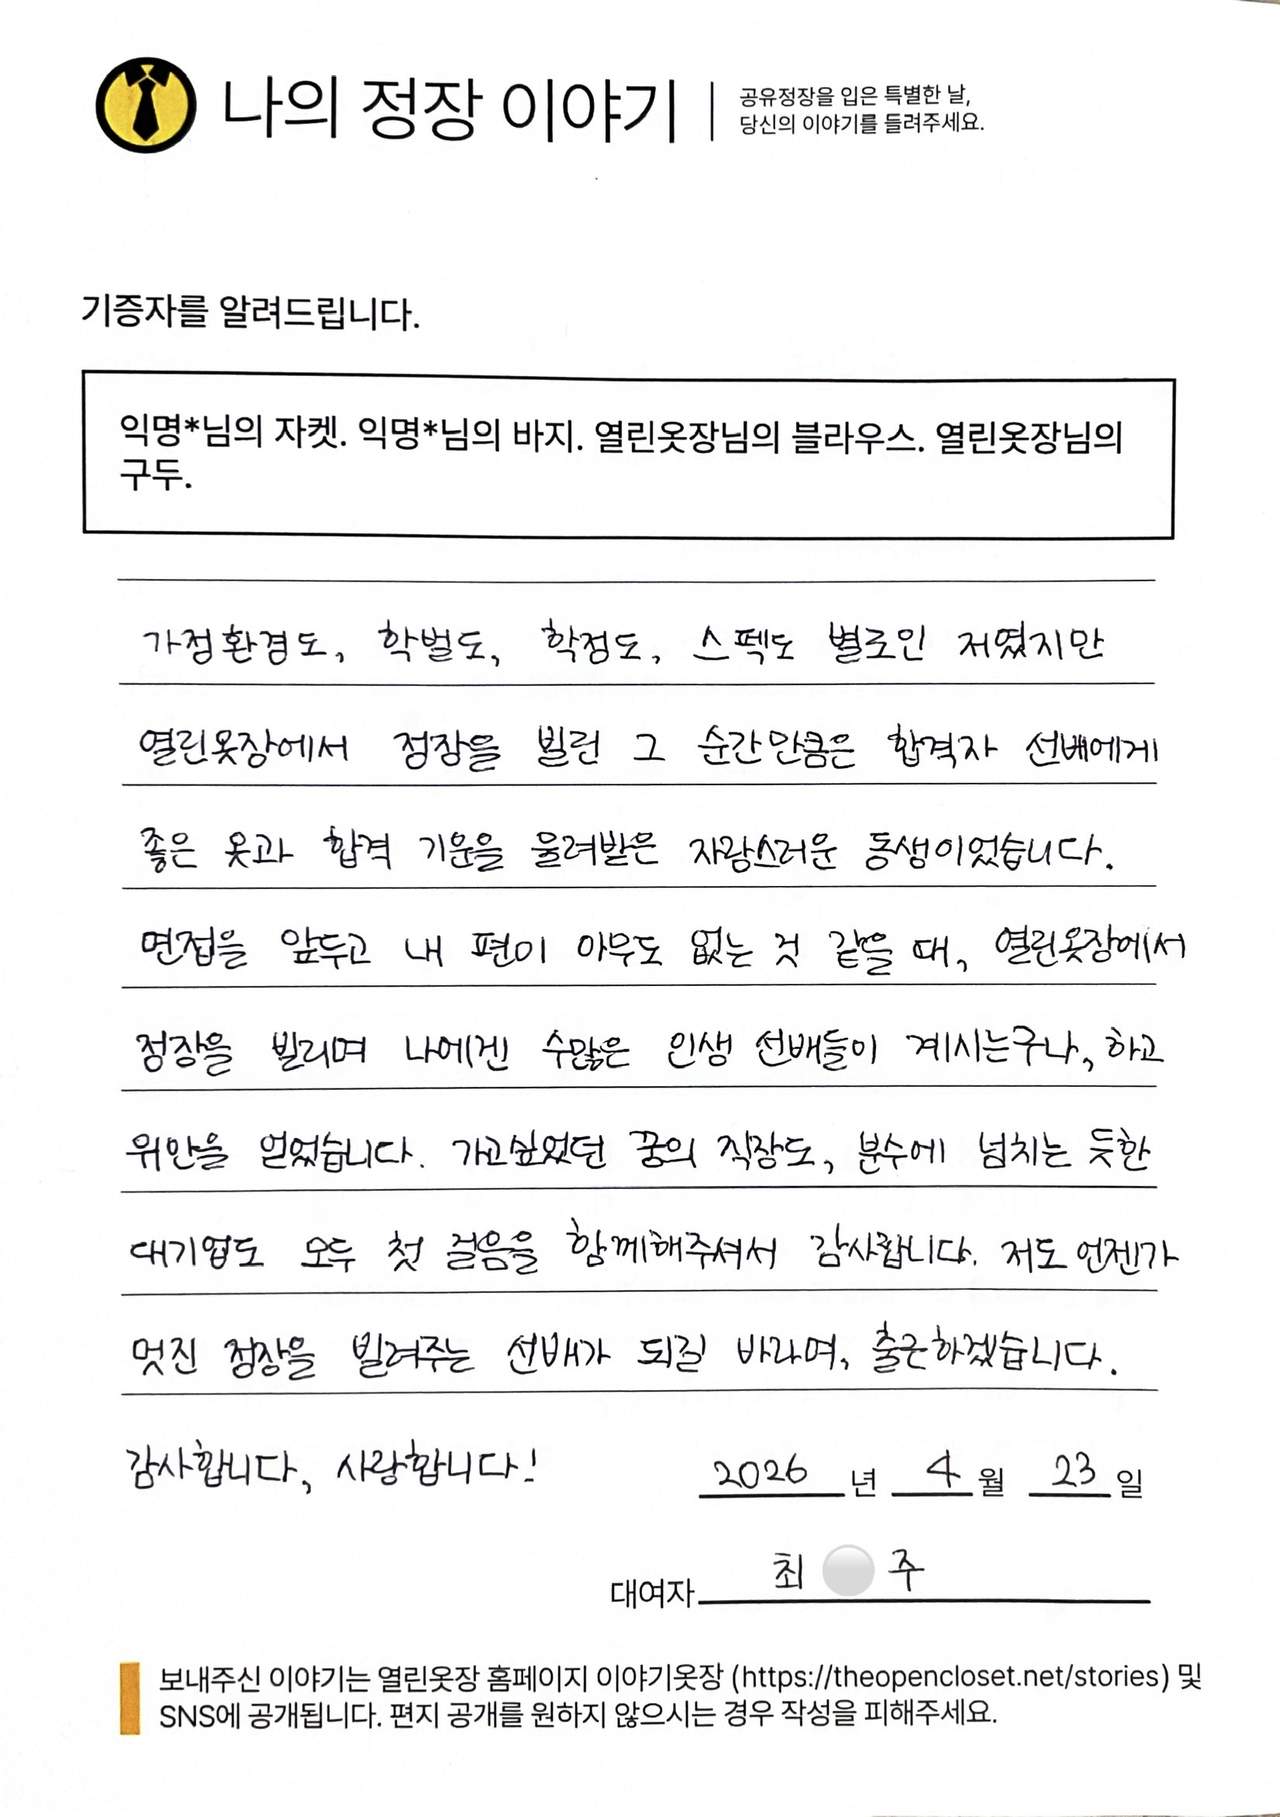 나의 정장 이야기
공유정장을 입은 특별한 날,
당신의 이야기를 들려주세요.
기증자를 알려드립니다.
익명*님의 자켓. 익명*님의 바지. 열린옷장님의 블라우스. 열린옷장님의
구두.
가정환경도, 학벌도, 학점도, 스펙도 별로인 저였지만
열린옷장에서 정장을 빌린 그 순간만큼은 합격자 선배에게
좋은 옷과 합격 기운을 물려받은 자랑스러운 동생이었습니다.
면접을 앞두고 내 편이 아무도 없는 것 같을 때, 열린옷장에서
정장을 빌리며 나에겐 수많은 인생 선배들이 계시는구나, 하고
위안을 얻었습니다. 가고싶었던 꿈의 직장도, 분수에 넘치는 듯한
대기업도 모두 첫 걸음을 함께해주셔서 감사합니다. 저도 언젠가
멋진 정장을 빌려주는 선배가 되길 바라며, 출근하겠습니다.
감사합니다, 사랑합니다!
2026 년 4 월 23 일
대여자 최 주
보내주신 이야기는 열린옷장 홈페이지 이야기옷장 (https://theopencloset.net/stories) 및
SNS에 공개됩니다. 편지 공개를 원하지 않으시는 경우 작성을 피해주세요.